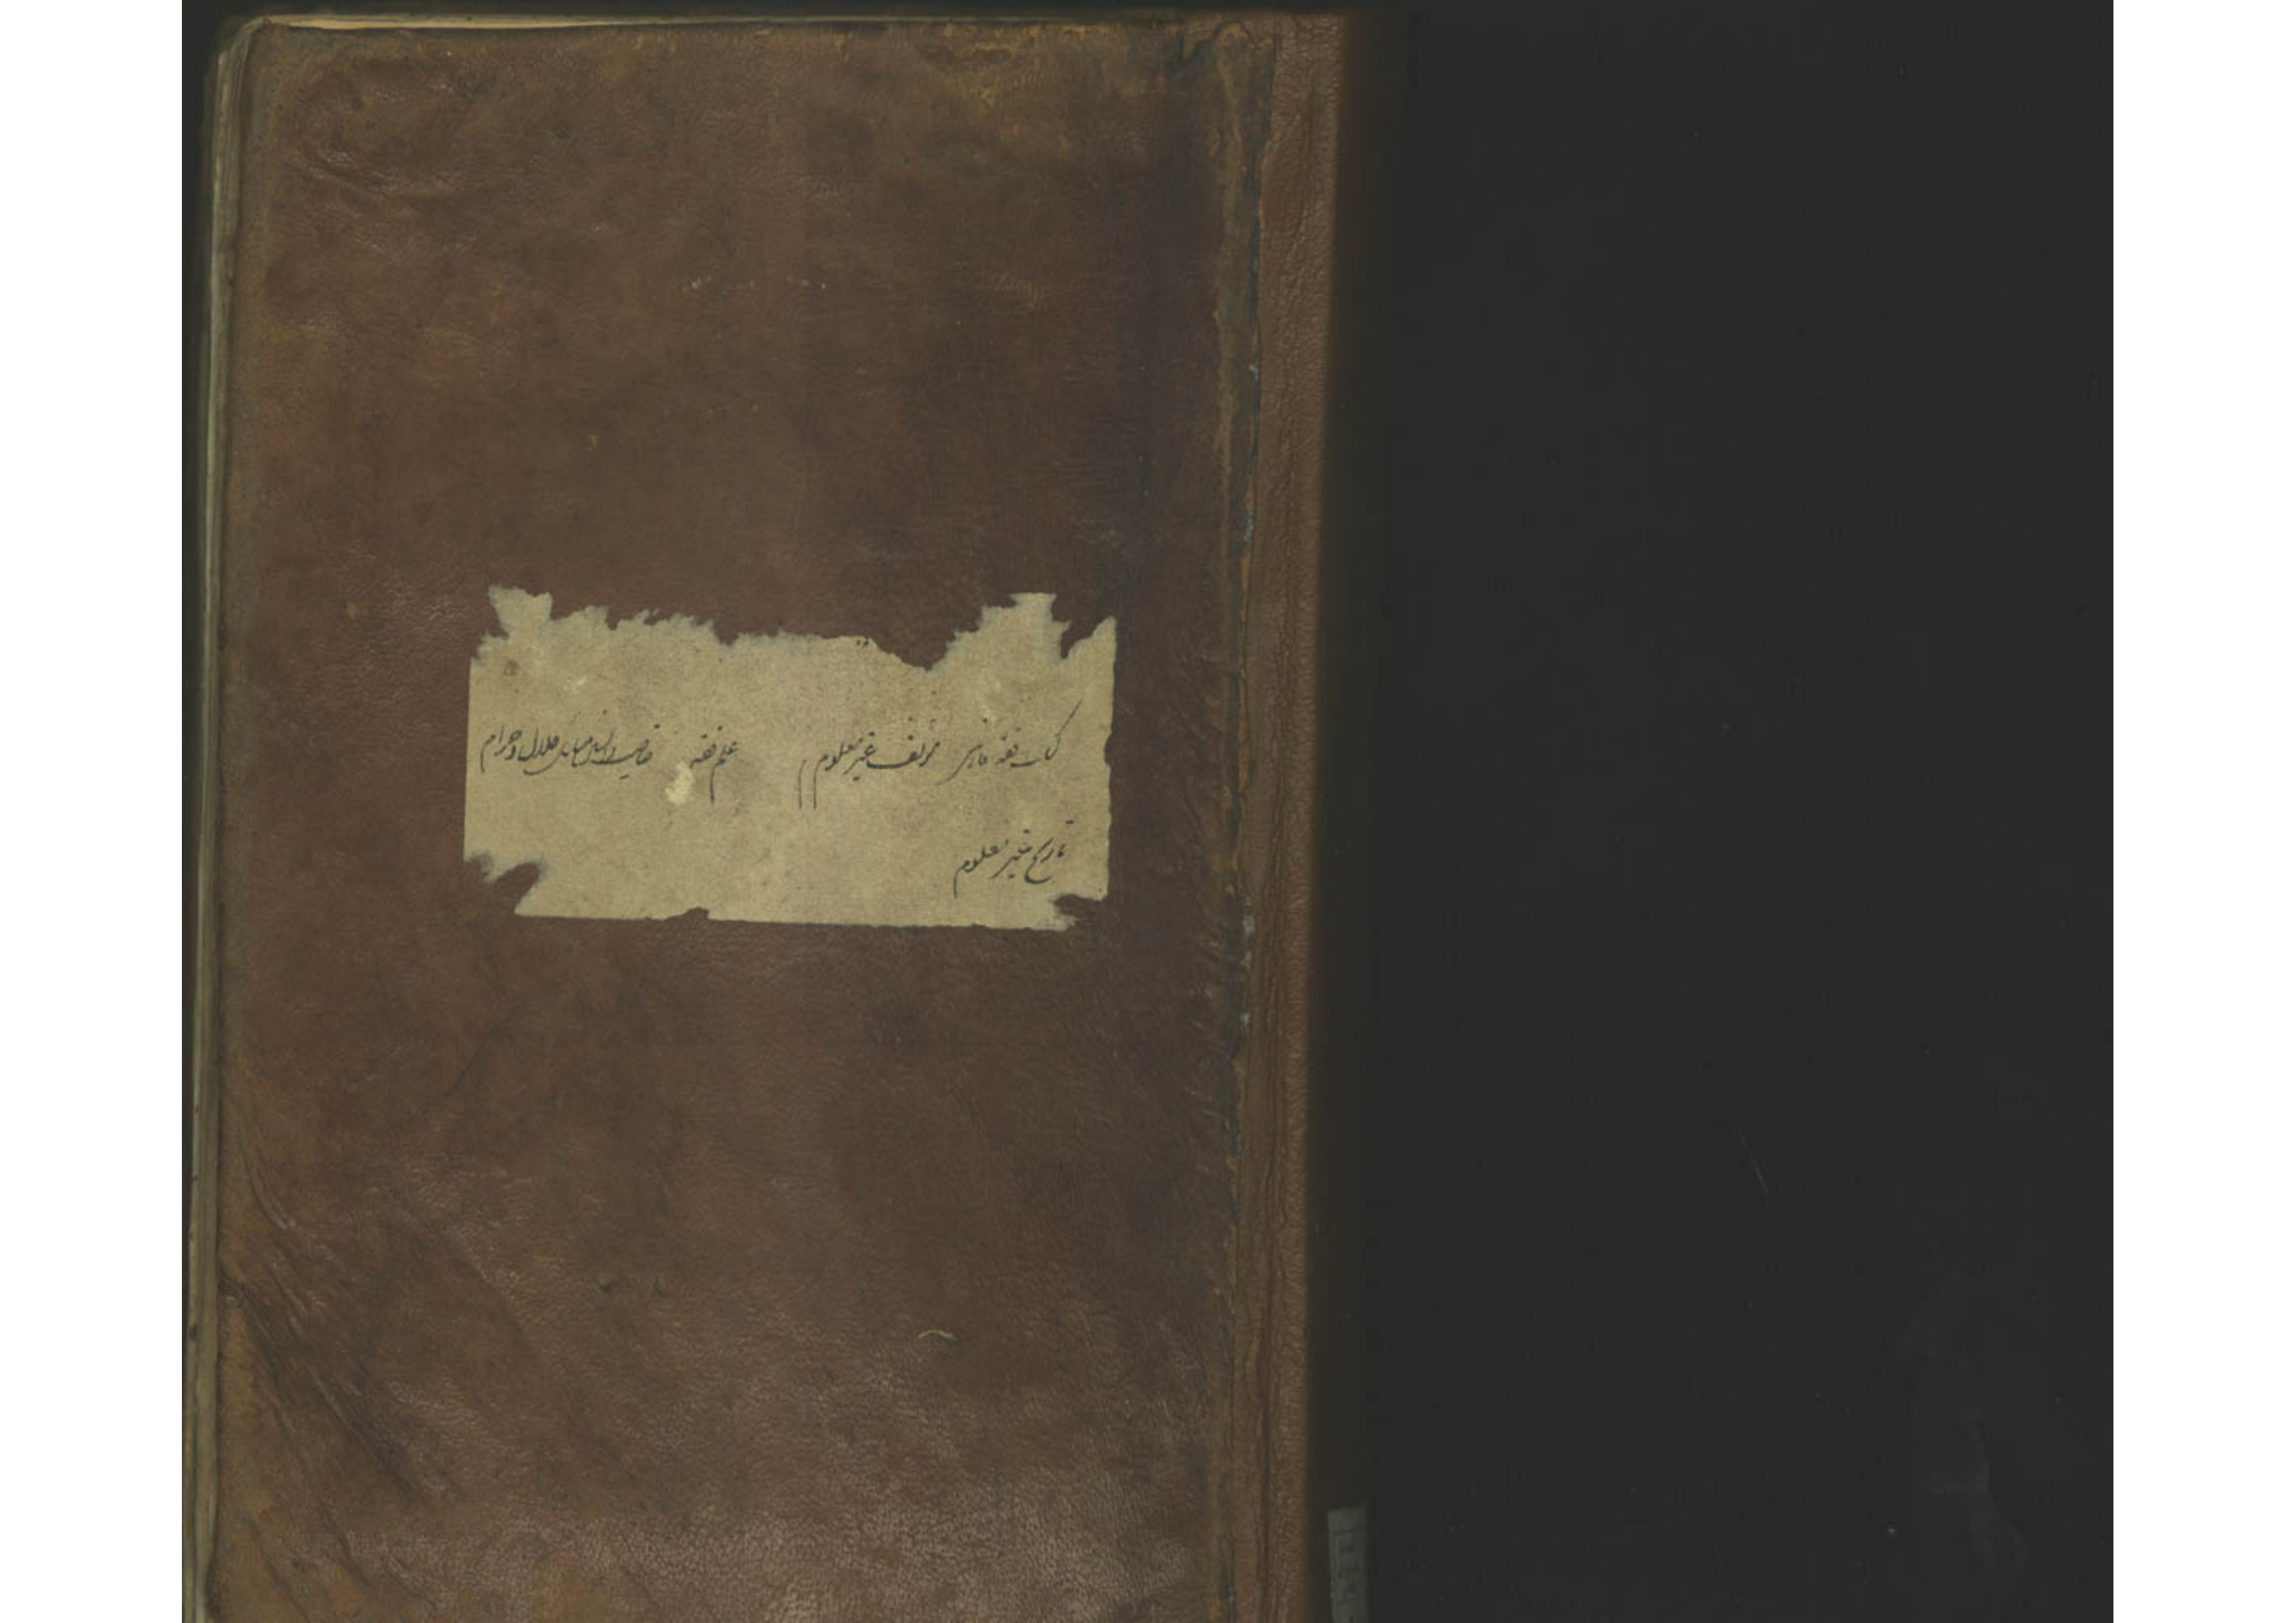 کتاب فقه فارسی مؤلف غیر معلوم علم فقه خاصیت دانستن مسائل حلال و حرام
تاریخ غیر معلوم